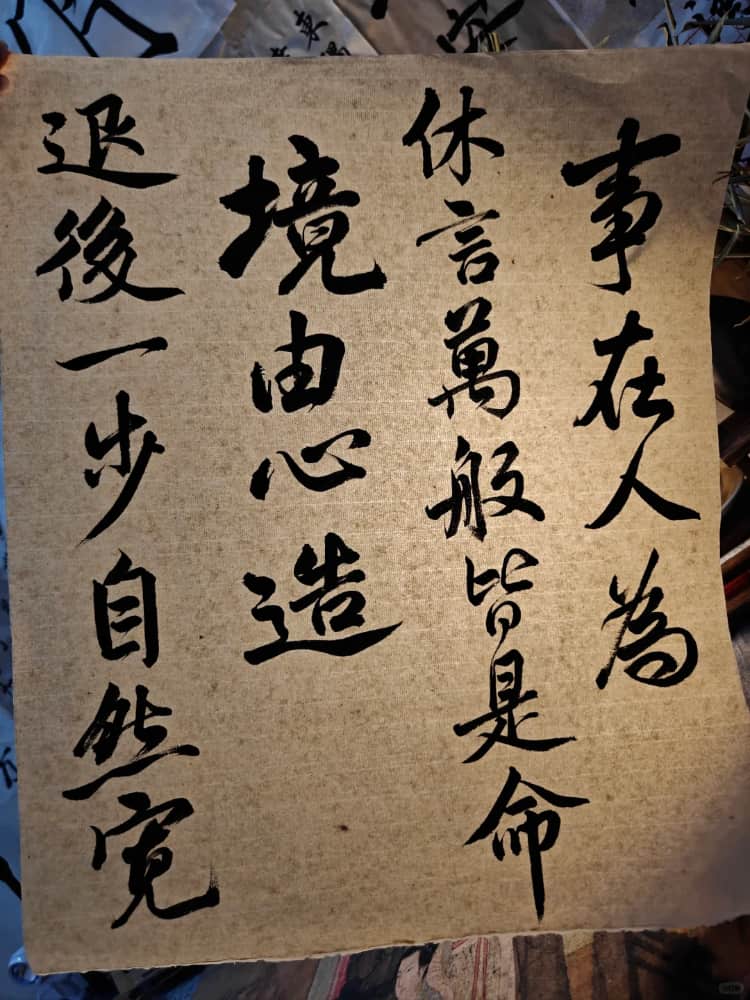 事在人為
休言萬般皆是命
境由心造
退後一步自然寬
東